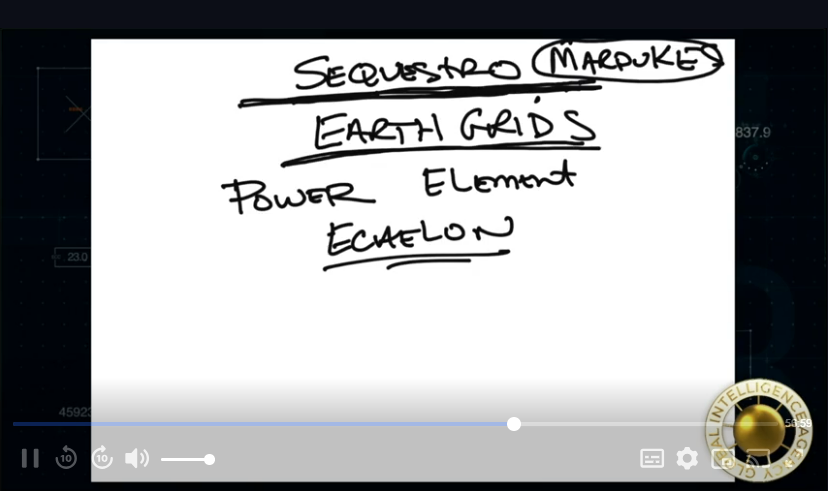 SEQUESTRO MARDUKES
EARTH GRIDS
POWER ELEMENT
ECHELON
837.9
23.0
45923
GLOBAL INTELLIGENCE AGENCY
10 10